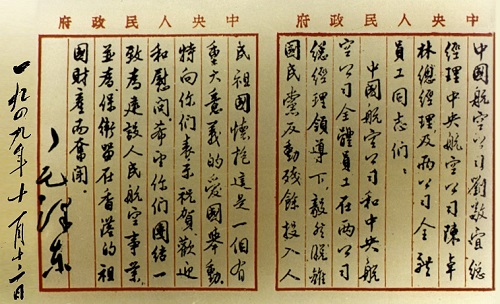 中央人民政府
中國航空公司劉敬宜總
經理中央航空公司陳卓
林總經理及兩公司全體
員工同志們：
中國航空公司和中央航
空公司全體員工在兩公司
總經理領導下，毅然脫離
國民黨反動殘餘投入人
中央人民政府
民祖國懷抱這是一個有
重大意義的愛國舉動
特向你們表示祝賀歡迎
和慰問。希望你們團結一
致為建設人民航空事業，
並為保衛留在香港的祖
國財產而奮鬥。
毛澤東
一九四九年十一月十二日